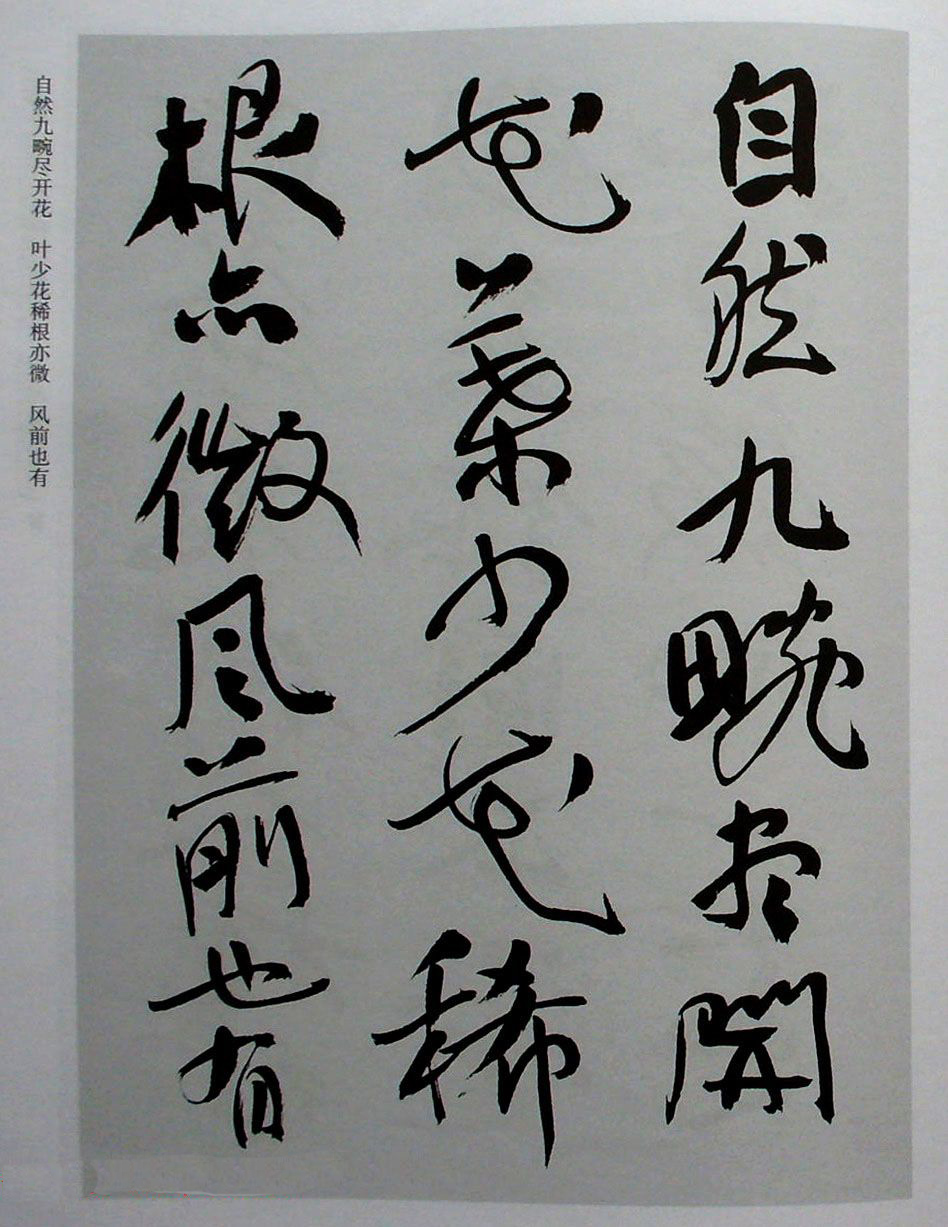 自然九畹尽開
花葉少花稀
根亦微風前也有
自然九畹尽开花 叶少花稀根亦微 风前也有